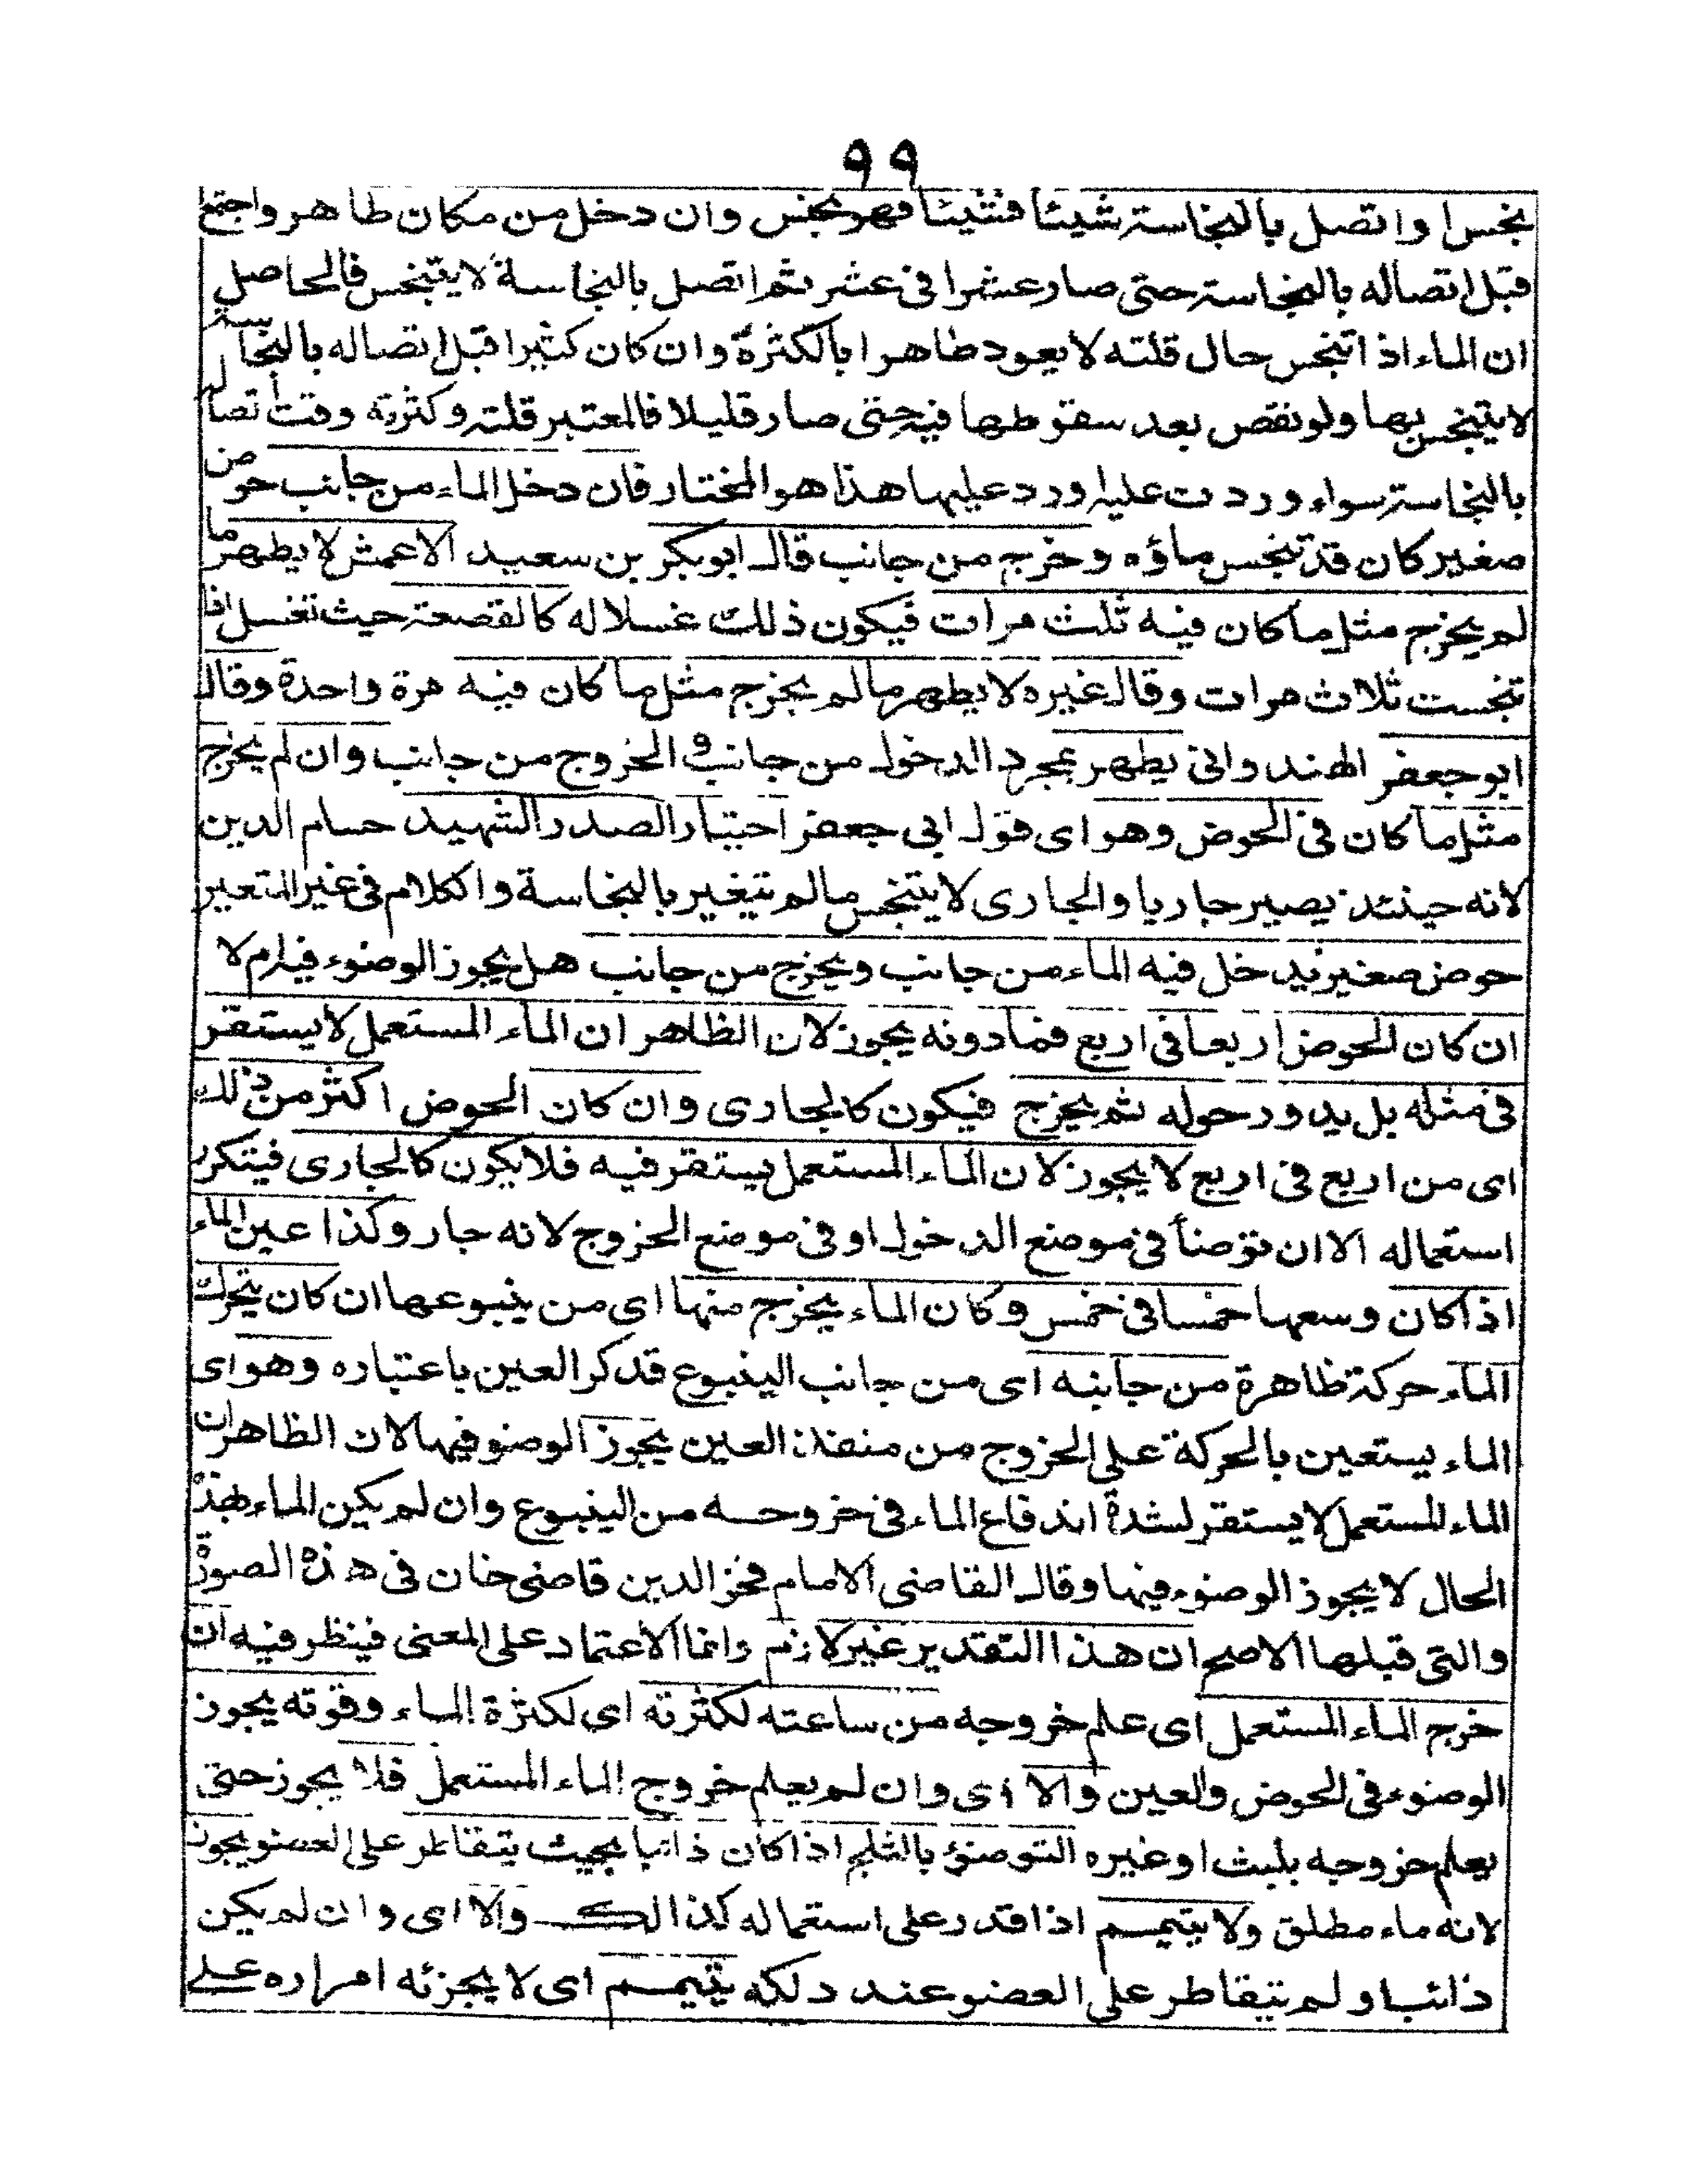 ٩٩
نجسا واتصل بالنجاسة شيئا فشيئا فهو نجس وان دخل من مكان طاهر واجتمع
قبل اتصاله بالنجاسة حتى صار عشرا فى عشر ثم اتصل بالنجاسة لا يتنجس فالحاصل
ان الماء اذا تنجس حال قلته لا يعود طاهرا بالكثرة وان كان كثيرا قبل اتصاله بالنجاسة
لا يتنجس بها ولو نقص بعد سقوطها فيه حتى صار قليلا فالمعتبر قلته وكثرته وقت اتصاله
بالنجاسة سواء وردت عليه او ورد عليها هذا هو المختار فان دخل الماء من جانب حوض
صغير كان قد تنجس ماؤه وخرج من جانب قال ابو بكر بن سعيد الاعمش لا يطهر ما
لم يخرج مثل ما كان فيه ثلث مرات فيكون ذلك غسلا له كالقصعة حيث تغسل اذا
تنجست ثلاث مرات وقال غيره لا يطهر ما لم يخرج مثل ما كان فيه مرة واحدة وقال
ابو جعفر الهندوانى يطهر بمجرد الدخول من جانب و الخروج من جانب وان لم يخرج
مثل ما كان فى الحوض وهو اى قول ابى جعفر اختيار الصدر الشهيد حسام الدين
لانه حينئذ يصير جاريا والجارى لا يتنجس ما لم يتغير بالنجاسة والكلام فى غير المتغير
حوض صغير يدخل فيه الماء من جانب ويخرج من جانب هل يجوز الوضوء فيه ام لا
ان كان الحوض اربعا فى اربع فما دونه يجوز لان الظاهر ان الماء المستعمل لا يستقر
فى مثله بل يدور حوله ثم يخرج فيكون كالجارى وان كان الحوض اكثر من ذلك
اى من اربع فى اربع لا يجوز لان الماء المستعمل يستقر فيه فلا يكون كالجارى فيتكرر
استعماله الا ان توضأ فى موضع الدخول او فى موضع الخروج لانه جار وكذا عين الماء
اذا كان وسعها خمسا فى خمس وكان الماء يخرج منها اى من ينبوعها ان كان يتحرك
الماء حركة ظاهرة من جانبه اى من جانب الينبوع قد ذكر العين باعتباره وهو اى
الماء يستعين بالحركة على الخروج من منفذ العين يجوز الوضو فيها لان الظاهر ان
الماء المستعمل لا يستقر لشدة اندفاع الماء فى خروجه من الينبوع وان لم يكن الماء بهذه
الحال لا يجوز الوضوء فيها وقال القاضى الامام فخر الدين قاضى خان فى هذه الصورة
والتى قبلها الاصح ان هذا التقدير غير لازم وانما الاعتماد على المعنى فينظر فيه ان
خرج الماء المستعمل اى علم خروجه من ساعته لكثرته اى لكثرة الماء وقوته يجوز
الوضوء فى الحوض والعين والا اى وان لم يعلم خروج الماء المستعمل فلا يجوز حتى
يعلم خروجه بلبث او غيره التوضؤ بالثلج اذا كان ذائبا بحيث يتقاطر على العضو يجوز
لانه ماء مطلق ولا يتيمم اذا قدر على استعماله كذالك والا اى وان لم يكن
ذائبا ولم يتقاطر على العضو عند دلكه يتيمم اى لا يجزئه امراره على